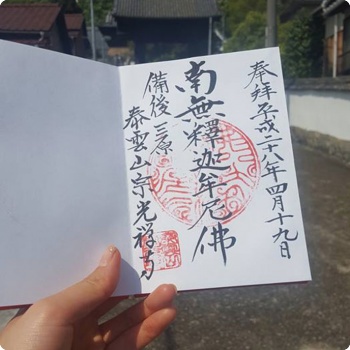 奉拜 平成二十八年四月十九日
南無釋迦牟尼佛
備後三原
泰雲山宗光禅寺